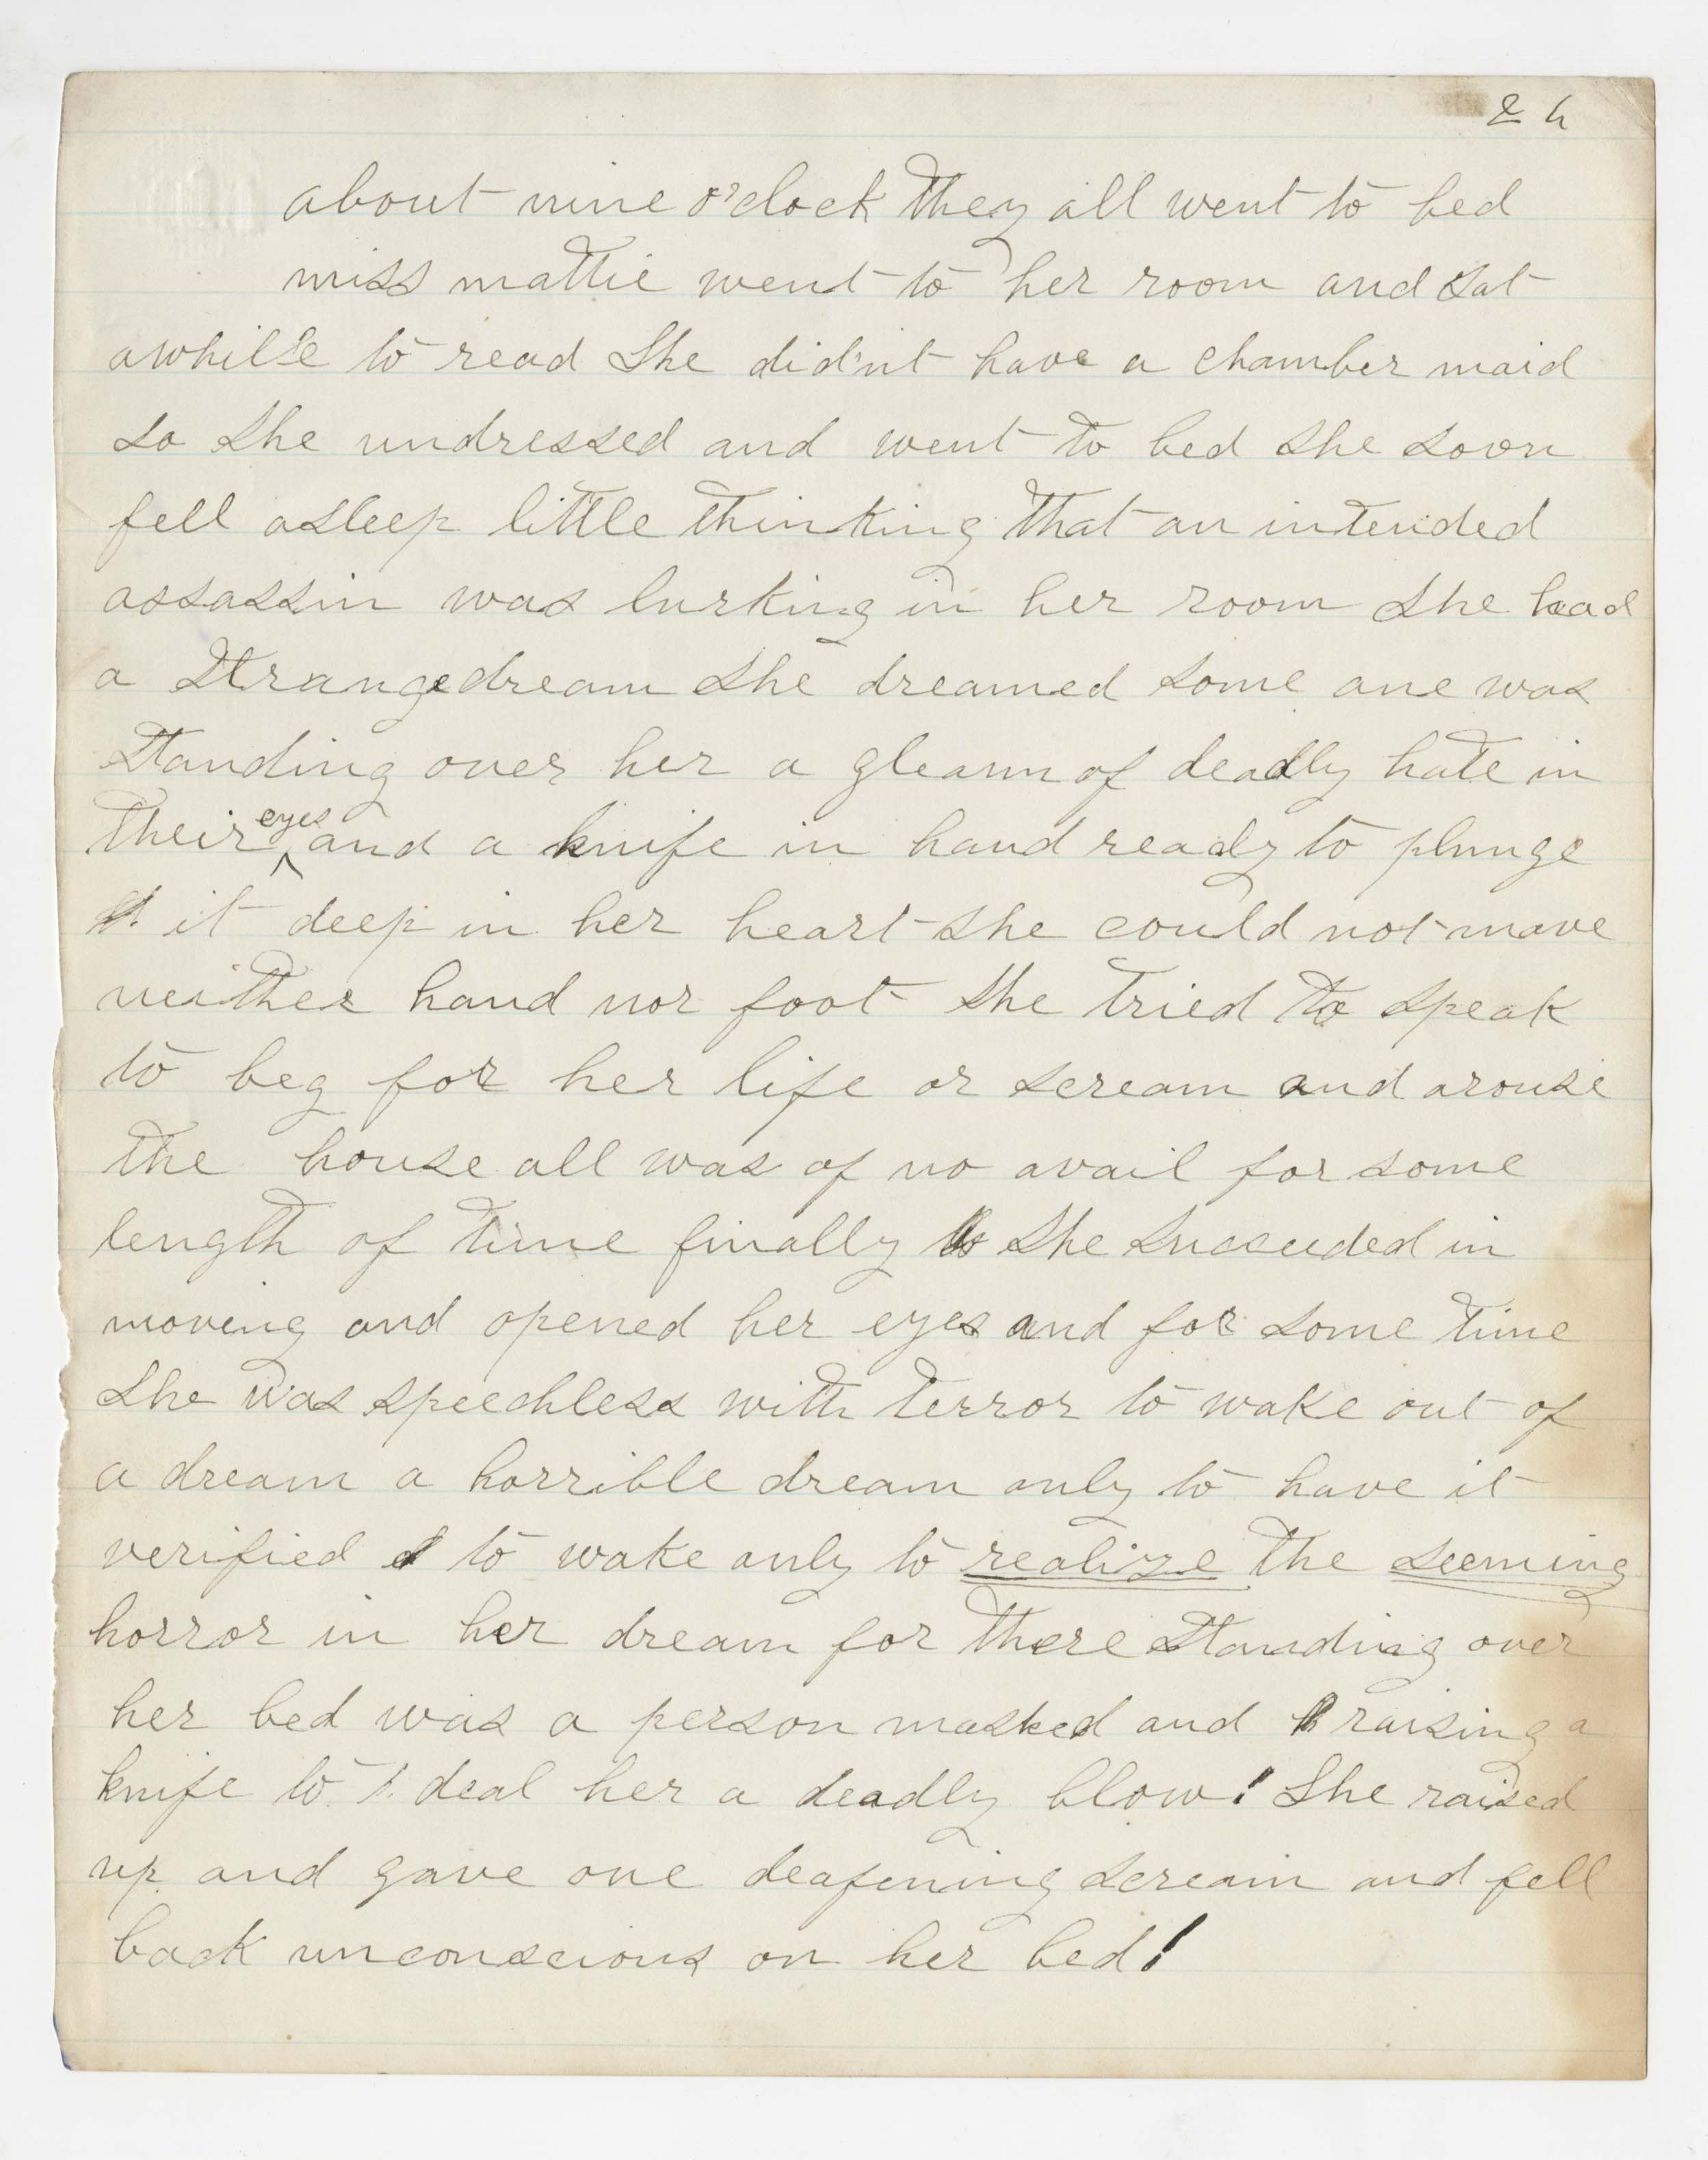 about nine o'clock they all went to bed
miss mattie went to her room and sat
awhile to read She did'nt have a chamber maid
so she undressed and went to bed she soon
fell asleep little thinking that an intended
assassin was lurking in her room She had
a strange dream She dreamed some one was
standing over her a gleam of deadly hate in
their eyes and a knife in hand ready to plunge
it deep in her heart she could not move
neither hand nor foot she tried to speak
to beg for her life or scream and arouse
the house all was of no avail for some
length of time finally she succeeded in
moving and opened her eyes and for some time
she was speechless with terror to wake out of
a dream a horrible dream only to have it
verified to wake only to realize the seeming
horror in her dream for there standing over
her bed was a person masked and raising a
knife to deal her a deadly blow! She raised
up and gave one deafening scream and fell
back unconscious on her bed!